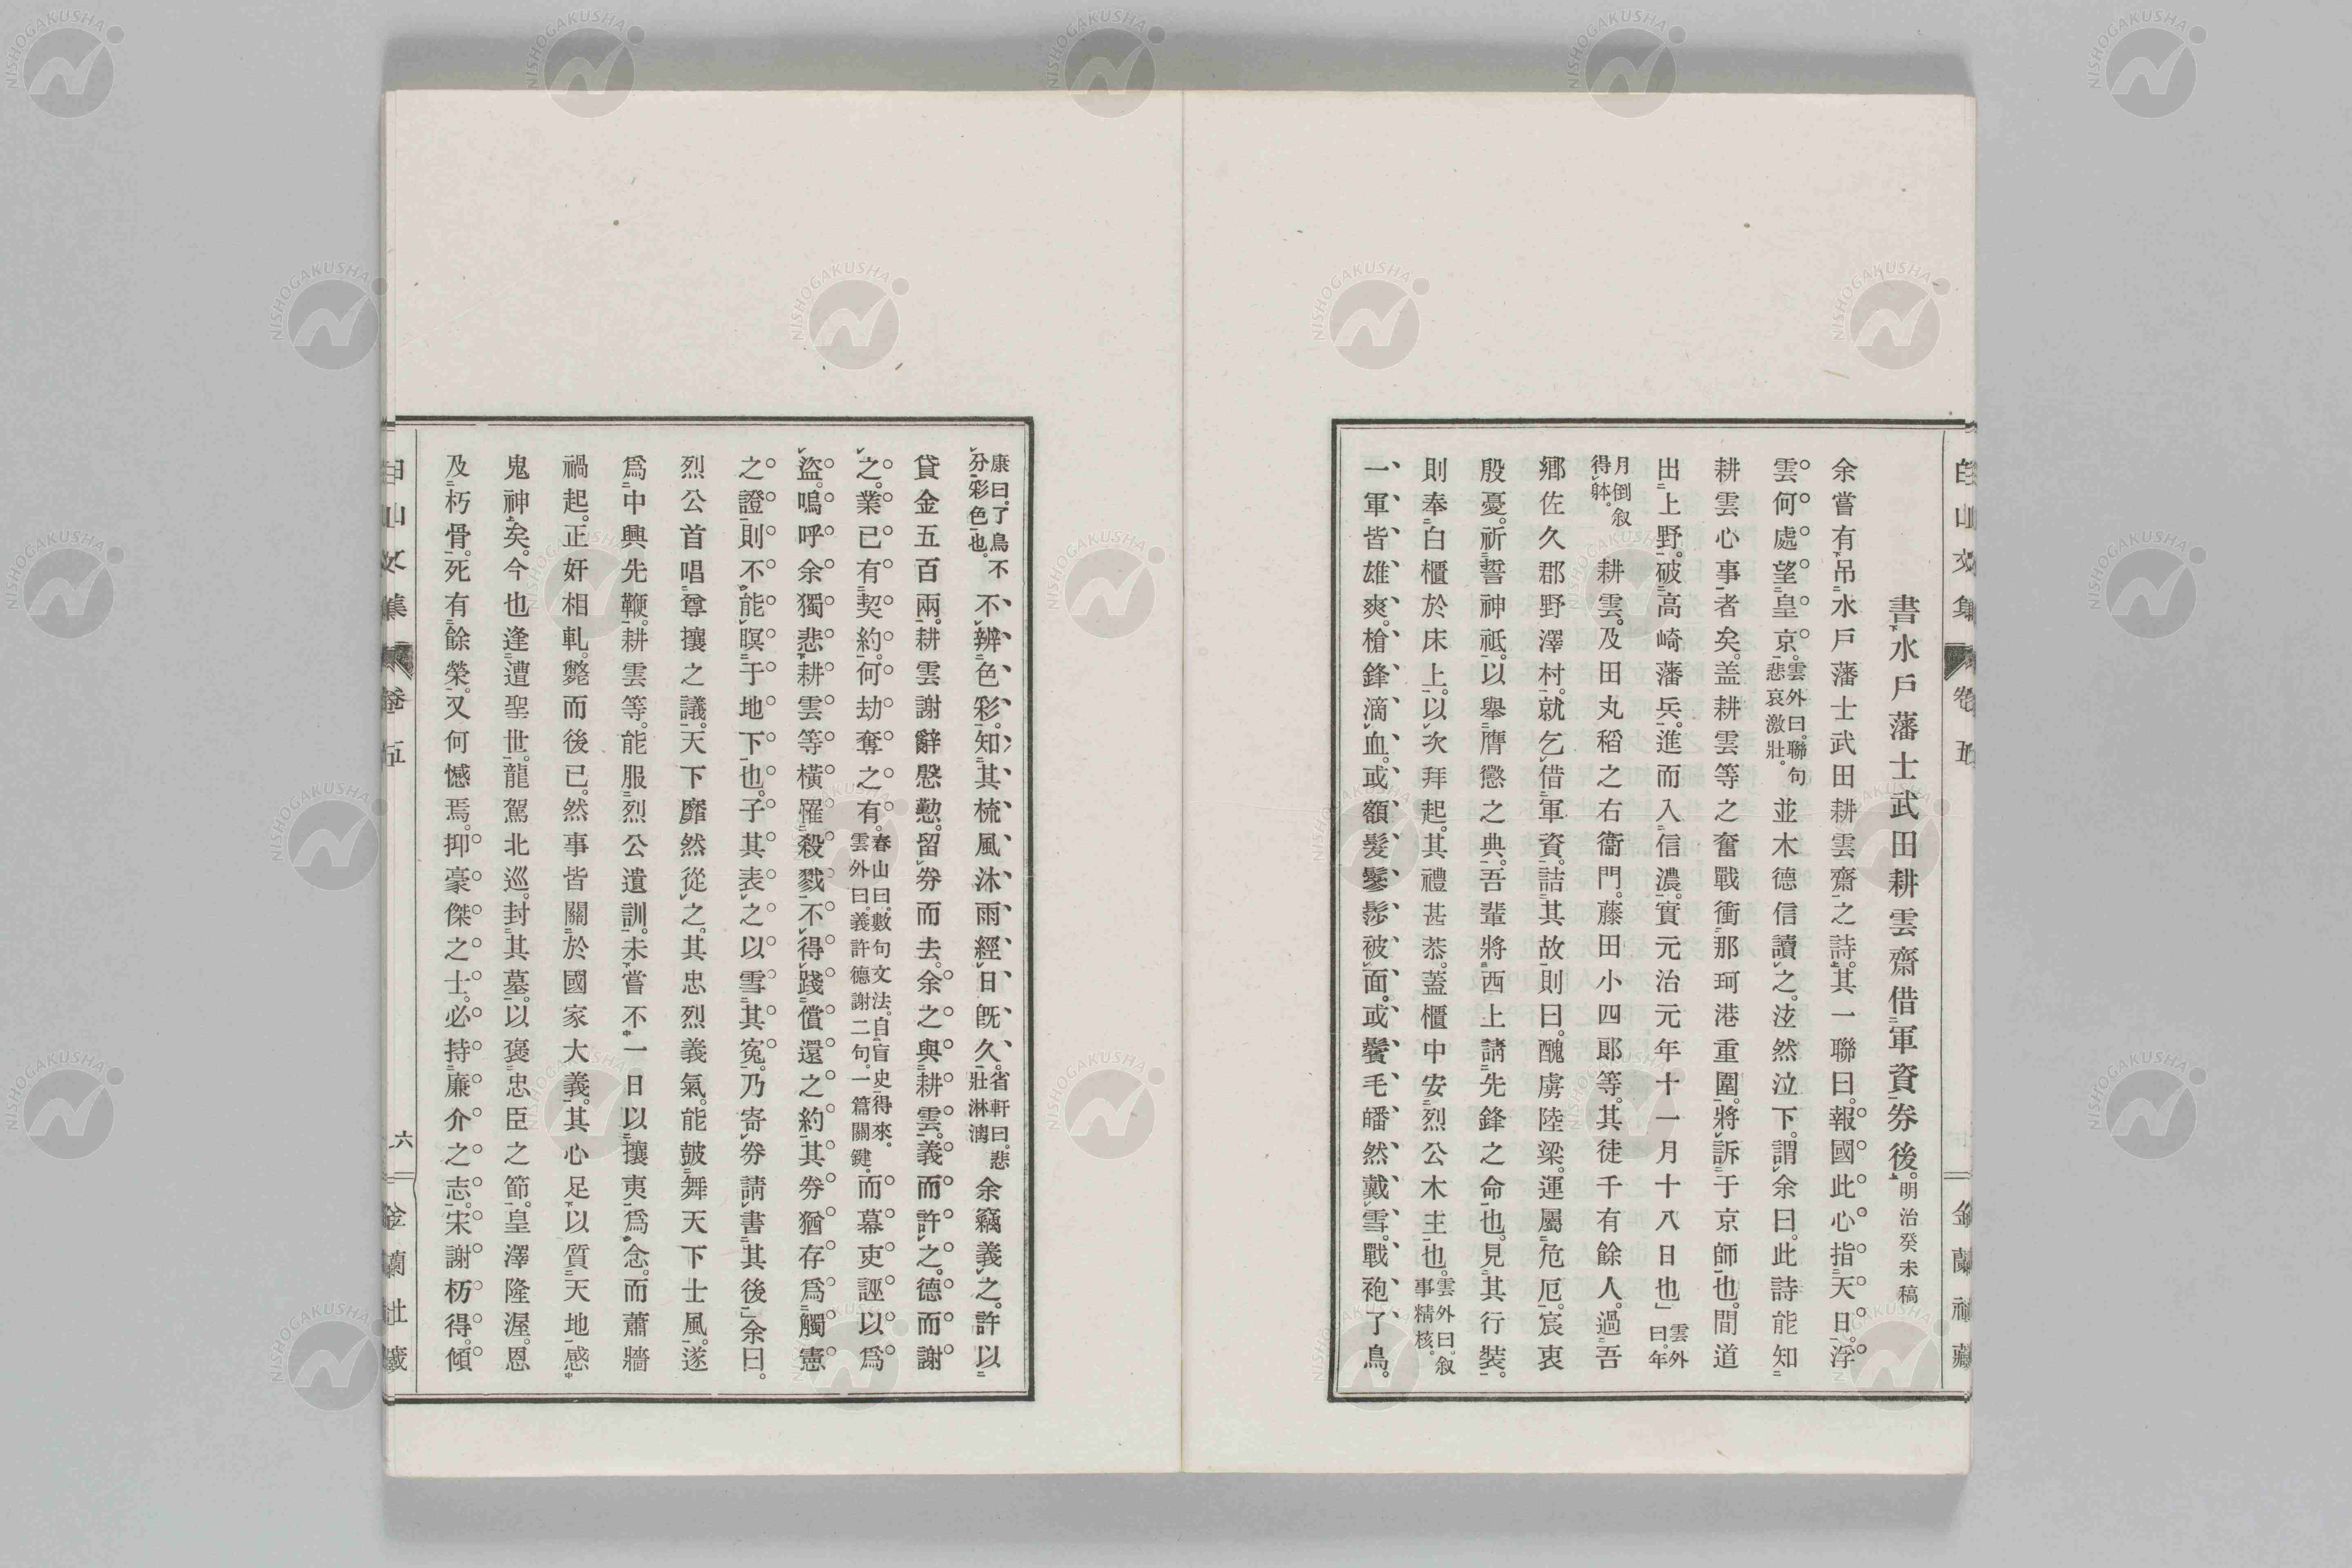 白山文集 卷五 金蘭社藏
書水戶藩士武田耕雲齋借軍資券後。明治癸未稿
余嘗有吊水戶藩士武田耕雲齋之詩。其一聯曰。報國此心指天日。浮
雲何處望皇京。雲外曰。聯句悲哀激壯。並木德信讀之。泫然泣下。謂余曰。此詩能知
耕雲心事者矣。盖耕雲等之奮戰衝那珂港重圍。將訴于京師也。間道
出上野。破高崎藩兵。進而入信濃。實元治元年十一月十八日也」雲外曰。年
月倒敘得躰。耕雲。及田丸稻之右衞門。藤田小四郞等。其徒千有餘人。過吾
鄕佐久郡野澤村。就乞借軍資。詰其故。則曰。醜虜陸梁。運屬危厄。宸衷
殷憂。祈誓神祗。以舉膺懲之典。吾輩將西上請先鋒之命也。見其行裝。
則奉白櫃於床上。以次拜起。其禮甚恭。蓋櫃中安烈公木主也。雲外曰。敘事精核。
一軍皆雄爽。槍鋒滴血。或額髮鬖髿被面。或鬢毛皤然戴雪。戰袍了鳥。
康曰。了鳥不分彩色也。不辨色彩。知其梳風沐雨經日既久。省軒曰。悲壯淋漓 余竊義之。許以
貸金五百兩。耕雲謝辭慇懃。留券而去。余之與耕雲。義而許之。德而謝
之。業已有契約。何劫奪之有。春山曰。數句文法。自盲史得來。雲外曰。義許德謝二句。一篇關鍵。而幕吏誣以爲
盜。嗚呼余獨悲耕雲等橫罹殺戮。不得踐償還之約。其券猶存。爲觸憲
之證。則不能瞑于地下也。子其表之以雪其寃。乃寄券請書其後」余曰。
烈公首唱尊攘之議。天下靡然從之。其忠烈義氣。能鼓舞天下士風。遂
爲中興先鞭。耕雲等。能服烈公遺訓。未嘗不一日以攘夷爲念。而蕭牆
禍起。正奸相軋。斃而後已。然事皆關於國家大義。其心足以質天地感
鬼神矣。今也逢遭聖世。龍駕北巡。封其墓。以褒忠臣之節。皇澤隆渥。恩
及朽骨。死有餘榮。又何憾焉。抑豪傑之士。必持廉介之志。宋謝枋得。傾
白山文集 卷五 六 金蘭社藏